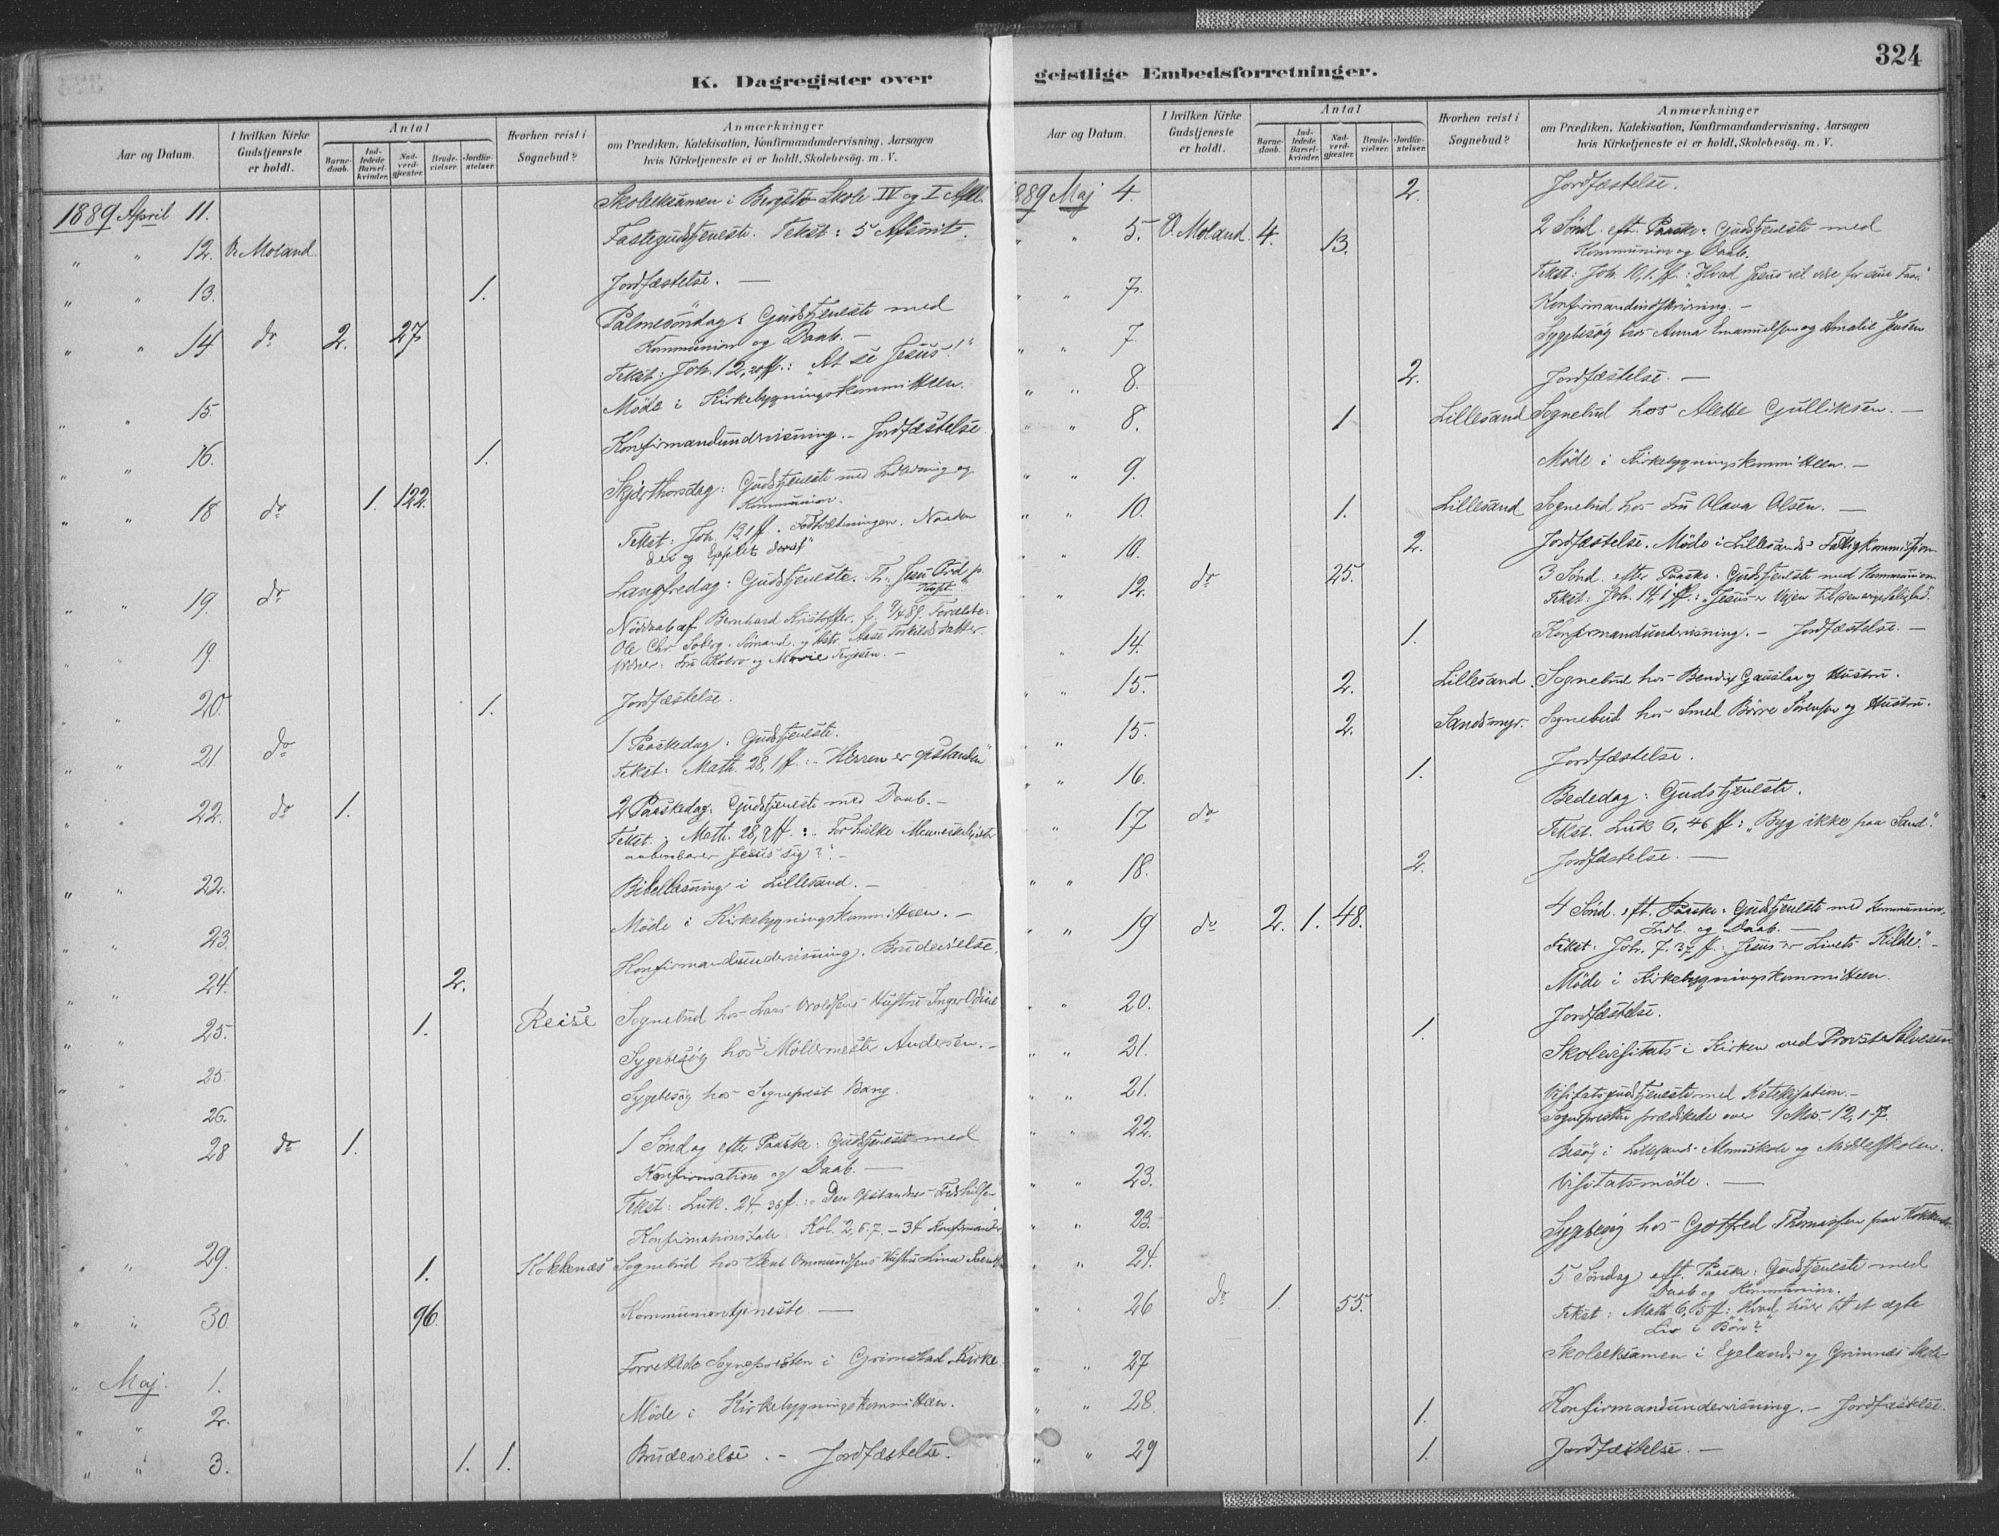 324
K. Dagregister over geistlige Embedsforretninger.
Aar og Datum.
I hvilken Kirke Gudstjeneste er holdt.
Antal
Barnedaab.
Indledede Barselkvinder.
Nadverdgjæster.
Brudevielser.
Jordfæstelser.
Hvorhen reist i Sognebud?
Anmærkninger
om Prædiken, Katekisation, Konfirmandundervisning, Aarsagen
hvis Kirketjeneste ei er holdt, Skolebesøg. m. V.
1889 April 11. Skoleeksamen i Bergstø Skole IV og I Afdl.
" " 12. V. Moland. Fastegudstjeneste. Tekst: 5 Afsnit.
" " 13. 1. Jordfæstelse. —
" " 14 do 2. 27 Palmesöndag: Gudstjeneste med
Kommunion og Daab. —
Tekst: Joh. 12, 20 ff.: "At se Jesus!"
" " 15. Møde i Kirkebygningskommitteen.
" " 16. 1. Konfirmandundervisning. — Jordfæstelse
" " 18 do 1. 122. Skjærthorsdag: Gudstjeneste med Indledning og
Kommunion.
Tekst: Joh. 13, 1 ff. Fodtvætningen.
" " 19. do Langfredag: Gudstjeneste. Th: Jesu Ord p.
Korset.
" " 19. Nöddaab af Bernhard Kristoffer, f. 9/4 89. Forældre:
Ole Chr. Soberg, Sömand, og Hstr. Aase Torkildsdatter.
" " 20. 1. Jordfæstelse.
" " 21. do 1 Paaskedag: Gudstjeneste.
Tekst: Math. 28, 1 ff: "Herren er opstanden"
" " 22. do 1. 2 Paaskedag: Gudstjeneste med Daab. —
Tekst: Math. 28, 8 ff: "For hvilke Mennesker
aabenbarer Jesus sig?" —
" " 22. Bibellæsning i Lillesand. —
" " 23. Møde i Kirkebygningskommitteen. —
" " 24. 2. Konfirmandundervisning. Brudevielse.
" " 25. 1. Reise Sognebud hos Lars Hustru Inger
" 25. Sygebesøg hos Møllermester Andersen. —
26. Sygebesøg hos Sogneprest Bang.
" 28 do 1. 1 Søndag efter Paaske: Gudstjeneste med
Konfirmation og Daab. —
Tekst: Luk. 24, 36 ff: "Den Opstandnes Fredshilsen"
Konfirmationstale: Kol. 2, 6.7. — 34 Konfirmander
" " 29. 1. Kokkenæs Sognebud hos Bent Ommundsens Hustru Lina
" " 30. 96. Kommuniontjeneste. —
" Maj. 1. Forrettede Sognepresten i Grimstad Kirke
" " 2. Møde i Kirkebygningskommitteen.
" " 3. 1. 1. Brudevielse. — Jordfæstelse.
1889 Maj 4. 2. Jordfæstelse.
" " 5. V. Moland. 4. 13. 2 Sönd. eft. Paaske: Gudstjeneste med
Kommunion og Daab.
Tekst: Joh. 10, 1 ff.: "Hvad Jesus vil være for sine Faar"
" " 7. Konfirmandindskrivning. —
" " 7 Sygebesøg hos Anna Emanuelsen og Amalie Jensen
" " 8. 2. Jordfæstelse. —
" " 8. 1 Lillesand Sognebud hos Alette Gulliksen. —
" " 9. Møde i Kirkebygningskommitteen. —
" " 10. 1. Lillesand Sognebud hos Fru Olava Olsen. —
" " 10. 2. Jordfæstelse. Møde i Lillesands Fattigkommission
" " 12. do 25. 3 Sönd. efter Paaske: Gudstjeneste med Kommunion
Tekst: Joh. 14, 1 ff.: "Jesus er Vejen til den evige Salighed".
" 14. 1. Konfirmandundervisning. — Jordfæstelse. —
" " 15. 2. Lillesand. Sognebud hos Bendix Gauslaa og Hustru.
" " 15. 2. Sandsmyr. Sognebud hos Smed Börre Sörensen og Hustru.
" " 16. 1. Jordfæstelse.
" 17 do Bededag: Gudstjeneste.
Tekst. Luk 6, 46 ff: "Byg ikke paa Sand".
" " 18. 2. Jordfæstelse. —
" " 19 do 2. 1. 48. 4 Sönd. eft. Paaske: Gudstjeneste med Kommunion,
Indl. og Daab. —
Tekst: Joh. 7, 37 ff.: "Jesus er Livets Kilde." —
" " 20. Møde i Kirkebygningskommitteen.
" " 21. 1. Jordfæstelse.
" " 21. Skolevisitats i Kirken ved Provst Salvesen
" " 22. Visitatsgudstjeneste med Katekisation. —
Sognepresten prædikede over 1 Mos. 12, 1-7.
" " 23. Besøg i Lillesands Almueskole og Middelskolen.
Visitatsmøde. —
" " 23. Sygebesøg hos Gotfred Thomassen paa Kokkenæs
" " 24.
" " 26 do 1. 55. 5 Søndag eft. Paaske: Gudstjeneste med
Daab og Kommunion.
Tekst: Math 6, 5 ff: Hvad hører til et ægte
Liv i Bøn?
" " 27 Skoleeksamen i Egelands og Grimnæs Skole
" " 28 1. Konfirmandundervisning. — Jordfæstelse.
" " 29 1. Jordfæstelse. —